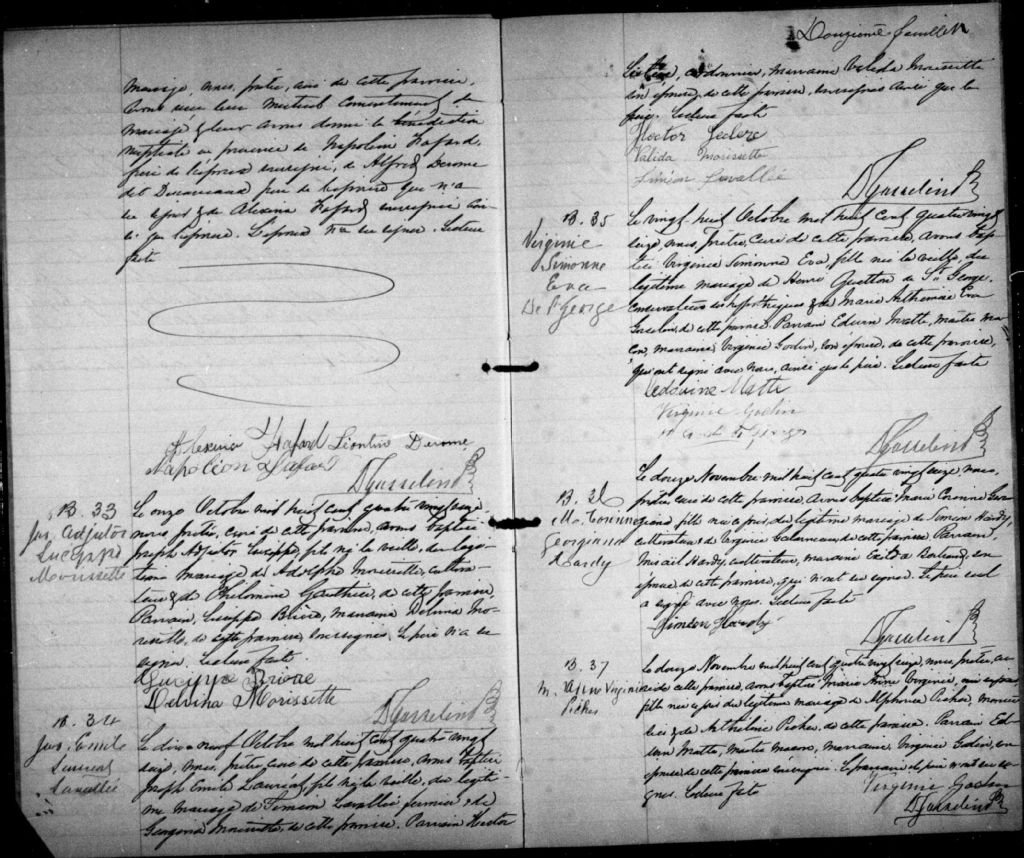 mariage, nous, prêtre, curé de cette paroisse,
avons reçu leur mutuel consentement de
mariage & leur avons donné la bénédiction
nuptiale en présence de Napoléon Hafard,
père de l'épouse soussigné, de Alfred Derome
dit Descarreaux père de l'époux qui n'a
su signer & de Alexina Hafard soussignée ainsi
que l'épouse. L'époux n'a su signer. Lecture
faite
Alexina Hafard Léontin Derome
Napoléon Hafard
D Gosselin Ptr
B. 33
Jos. Adjutor
Lucappe
Morissette
Le onze Octobre mil huit cent quatre vingt seize,
nous, prêtre, curé de cette paroisse, avons baptisé
Joseph Adjutor, fils né la veille, du légi-
time mariage de Adolphe Morissette, cultiva-
teur & de Philomène Gauthier, de cette paroisse.
Parrain, marraine Delvina Mo-
rissette, de cette paroisse, soussignés. Le père n'a su
signer. Lecture faite.
Delvina Morissette
D Gosselin Ptr
B. 34
Jos. Emile
Lauréat
Lavallée
Le dix neuf Octobre mil huit cent quatre vingt
seize, nous, prêtre, curé de cette paroisse, avons baptisé
Joseph Emile Lauréat, fils né la veille, du légiti-
me mariage de Siméon Lavallée fermier & de
Georgiana Morissette, de cette paroisse. Parrain Hector
Douzième feuillet
Leclerc, cordonnier, marraine Valida Morissette
son épouse, de cette paroisse, soussignés ainsi que le
père. Lecture faite
Hector Leclerc
Valida Morissette
Siméon Lavallée
D Gosselin Ptr
B. 35
Virginie
Simonne
Eva
De St George
Le vingt huit Octobre mil huit cent quatre vingt
seize, nous, Prêtre, Curé de cette paroisse, avons bap-
tisé Virginie Simonne Eva, fille née la veille, du
légitime mariage de Henri Quetton de St. George
Conservateur des hypothèques & de Marie Eva
Gosselin, de cette paroisse. Parrain Edwin Matte, maître ma-
çon, marraine, Virginie Godin, son épouse, de cette paroisse,
qui ont signé avec nous, ainsi que le père. Lecture faite
Matte
Virginie Godin
de St George
D Gosselin Ptr
B. 36
M. Corinne
Georgiana
Hardy
Le douze Novembre mil huit cent quatre vingt seize, nous,
prêtre, curé de cette paroisse, avons baptisé Marie Corinne Geor-
giana fille née ce jour, du légitime mariage de Siméon Hardy,
cultivateur & de Virginie de cette paroisse. Parrain,
Misaël Hardy, cultivateur, marraine son
épouse de cette paroisse, qui n'ont su signer. Le père seul
a signé avec nous. Lecture faite
Siméon Hardy
D Gosselin Ptr
B. 37
M. Anne Virginie
Pichet
Le douze Novembre mil huit cent quatre vingt seize, nous, prêtre, cu-
ré de cette paroisse, avons baptisé Marie Anne Virginie,
fille née ce jour du légitime mariage de Alphonse Pichet,
& de de cette paroisse. Parrain Ed-
win Matte, maître maçon, marraine, Virginie Godin, son
épouse, de cette paroisse soussignée. Le parrain et le père n'ont su si-
gner. Lecture faite
Virginie Godin
D Gosselin Ptr